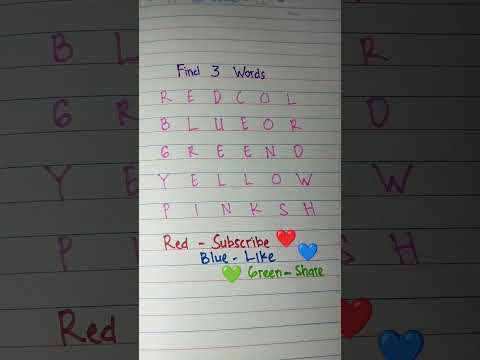 Find 3 Words
R E D C O L
B L U E O R
G R E E N D
Y E L L O W
P I N K S H
Red - Subscribe
Blue - Like
Green - Share